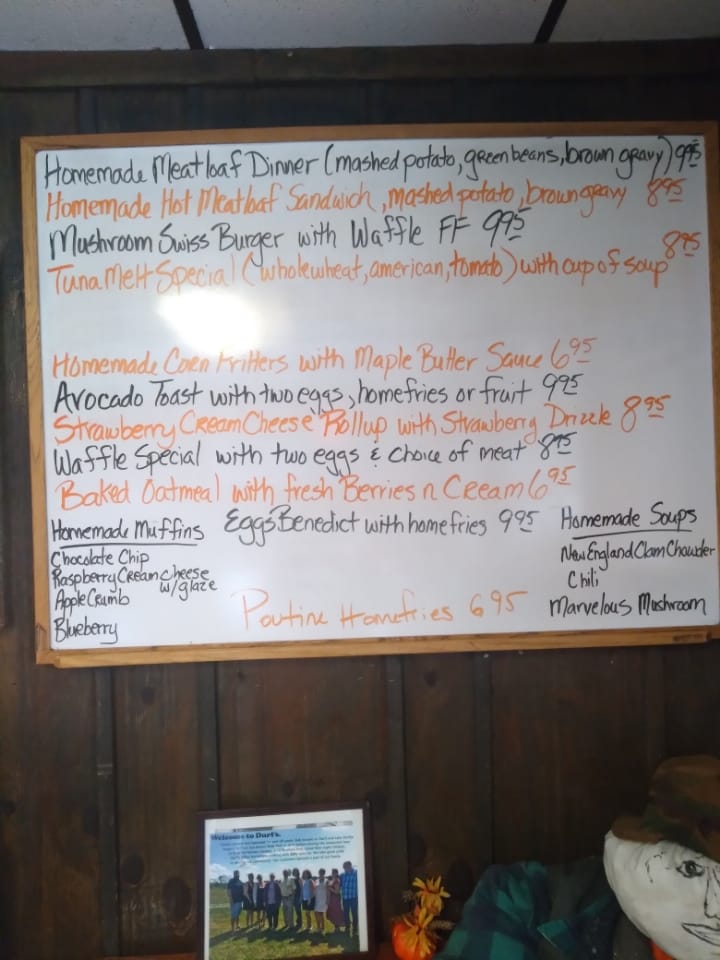 Homemade Meatloaf Dinner (mashed potato, green beans, brown gravy) 9.95
Homemade Hot Meatloaf Sandwich, mashed potato, brown gravy 8.95
Mushroom Swiss Burger with Waffle FF 9.95
Tuna Melt Special (wholewheat, american, tomato) with cup of soup 8.95
Homemade Corn Fritters with Maple Butter Sauce 6.95
Avocado Toast with two eggs, homefries or fruit 9.95
Strawberry Cream Cheese Rollup with Strawberry Drizzle 8.95
Waffle Special with two eggs & choice of meat 8.95
Baked Oatmeal with fresh Berries n Cream 6.95
Eggs Benedict with homefries 9.95
Homemade Muffins
Chocolate Chip
Raspberry Cream Cheese
w/glaze
Apple Crumb
Blueberry
Poutine Homefries 6.95
Homemade Soups
New England Clam Chowder
Chili
Marvelous Mushroom
Welcome to Durf's.